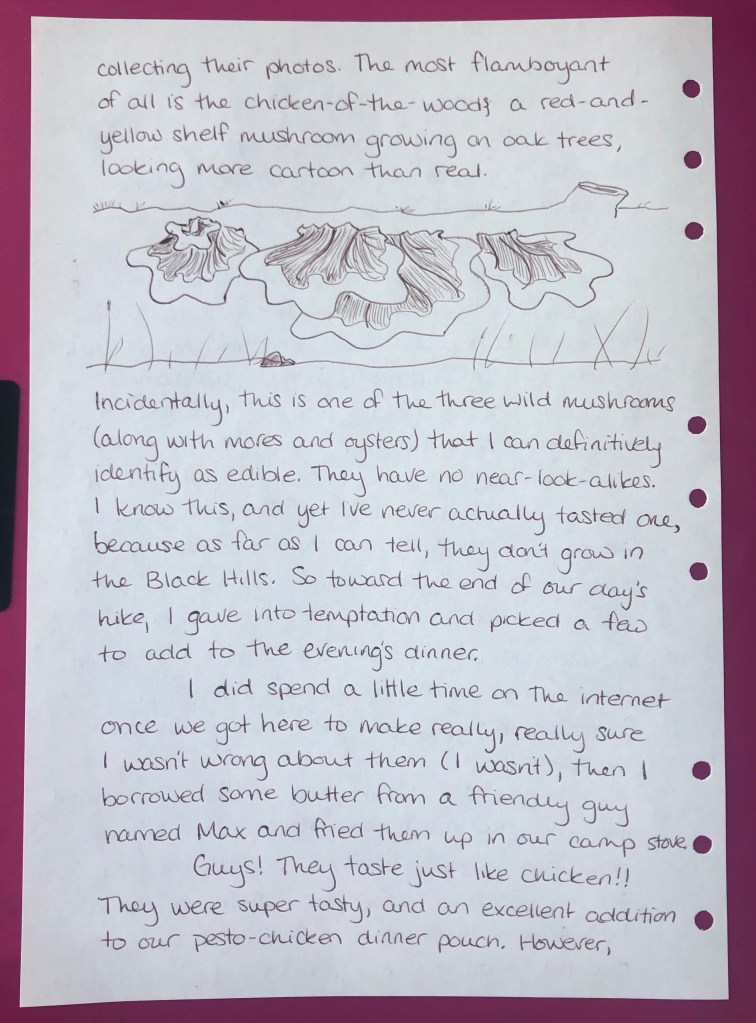 collecting their photos. The most flamboyant
of all is the chicken-of-the-woods; a red-and-
yellow shelf mushroom growing on oak trees,
looking more cartoon than real.
Incidentally, this is one of the three wild mushrooms
(along with mores and oysters) that I can definitively
identify as edible. They have no near-look-alikes.
I know this, and yet I've never actually tasted one,
because as far as I can tell, they don't grow in
the Black Hills. So toward the end of our day's
hike, I gave into temptation and picked a few
to add to the evening's dinner.
I did spend a little time on the internet
once we got here to make really, really sure
I wasn't wrong about them (I wasn't), then I
borrowed some butter from a friendly guy
named Max and fried them up in our camp stove.
Guys! They taste just like chicken!!
They were super tasty, and an excellent addition
to our pesto-chicken dinner pouch. However,